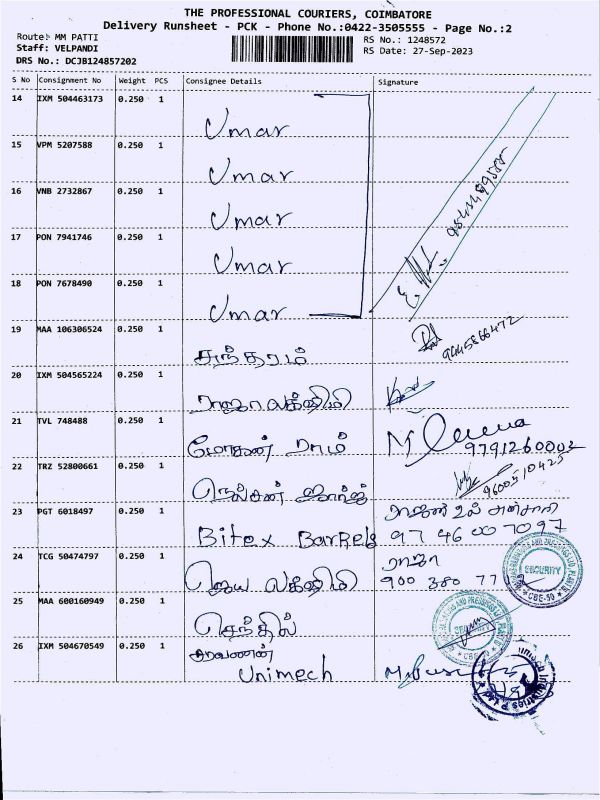 THE PROFESSIONAL COURIERS, COIMBATORE
Delivery Runsheet - PCK - Phone No.:0422-3505555 - Page No.:2
Route: MM PATTI
RS No.: 1248572
Staff: VELPANDI
RS Date: 27-Sep-2023
DRS No.: DCJB124857202
S No Consignment No Weight PCS Consignee Details Signature
14 IXM 504463173 0.250 1
Umar
15 VPM 5207588 0.250 1
Umar
16 VNB 2732867 0.250 1
Umar
17 PON 7941746 0.250 1
Umar
18 PON 7678490 0.250 1
Umar
19 MAA 106306524 0.250 1
சுந்தரம்
9445866472
20 IXM 504565224 0.250 1
ராஜா லக்ஷிமி
21 TVL 748488 0.250 1
மோகன் ராம்
9791260002
22 TRZ 52800661 0.250 1
நெல்சன் ஜார்ஜ்
9600510425
23 PGT 6018497 0.250 1
Bitex Barrels
97 46 00 7097
24 TCG 50474797 0.250 1
ராஜா
ஜெய லக்ஷிமி
900 380 77
SECURITY
CBE-50
25 MAA 600160949 0.250 1
செந்தில்
26 IXM 504670549 0.250 1
சரவணன்
Unimech